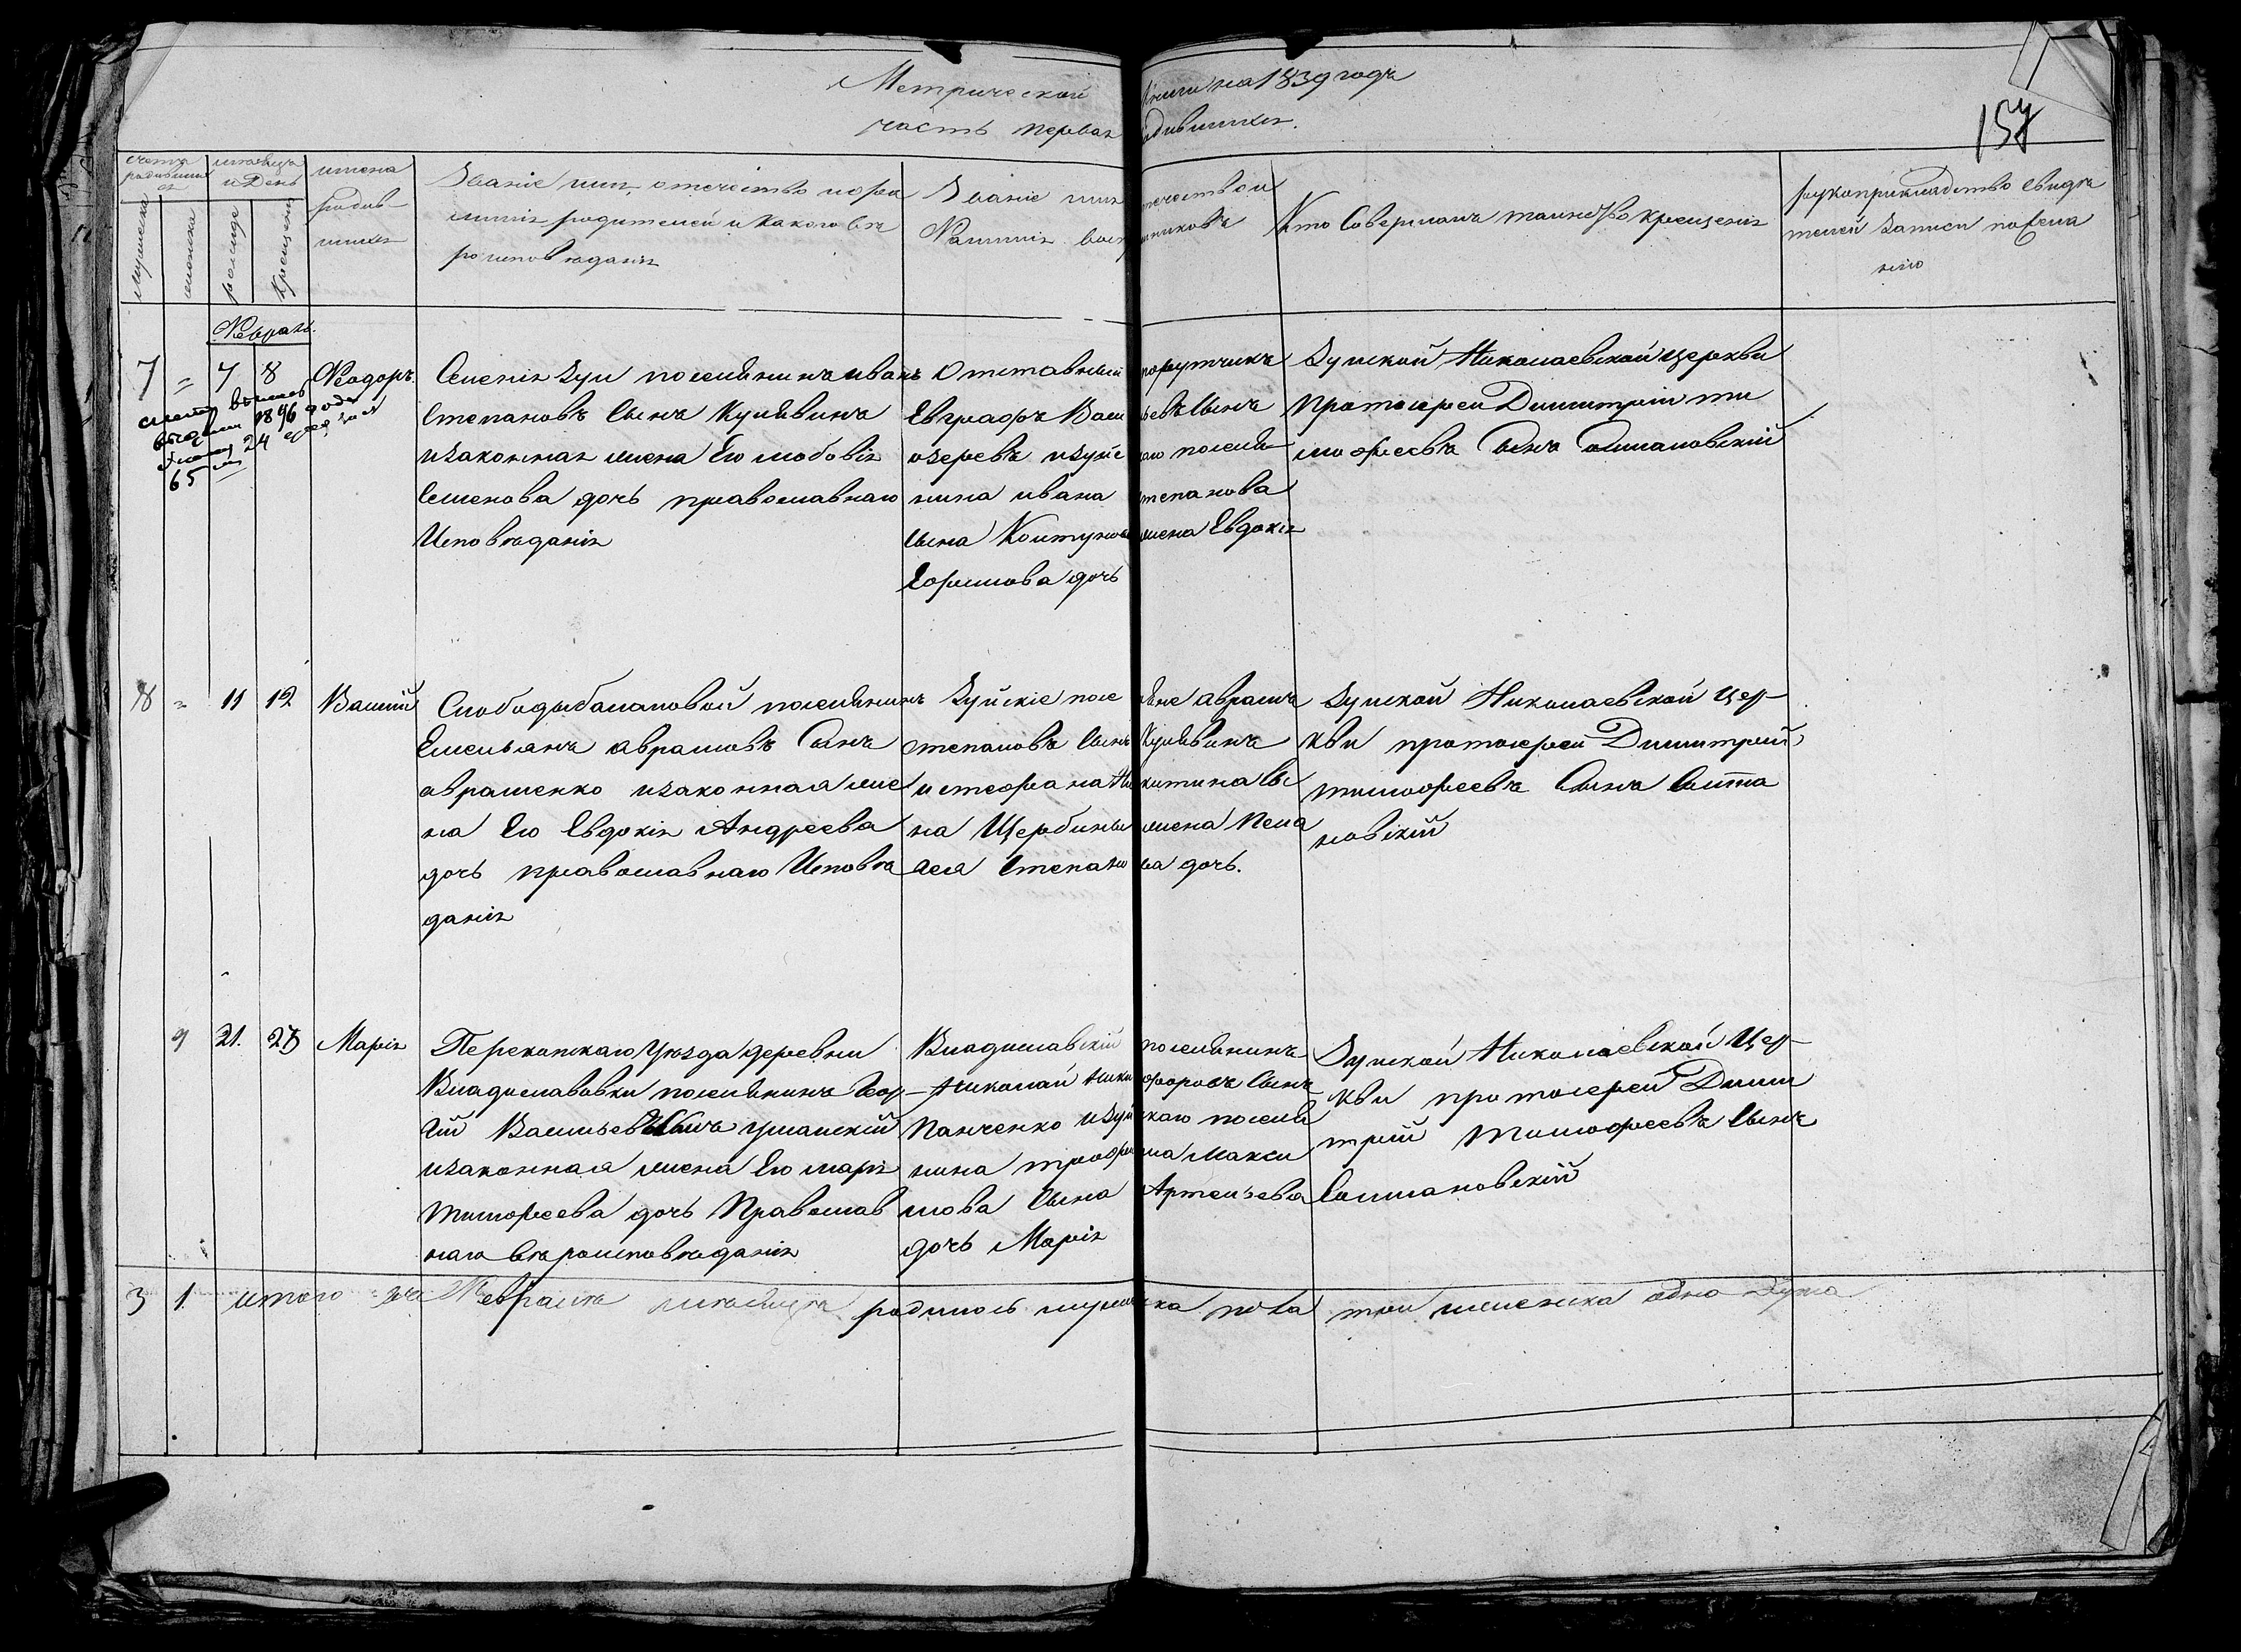 Метрической книги на 1839 годъ
часть первая родившихся.
157
счетъ родившихся
мужеска
женска
месяцъ и день
рожде
крещенiя
имена родившихся
Званiе имя, отечество и фамилiя родителей и какого вероисповеданiя
Званiе имя отечество и Фамилiя восприемниковъ
Кто Совершалъ таинство крещенiя
рукоприкладство свидетелей записи по желанiю
Февраль.
7 = 7 8 Феодоръ.
1896 года
24
65
Селенiя Зуи поселянинъ иванъ
Степановъ сынъ Кулявинъ
изаконная жена Его любовiя
Семенова дочь православнаго
Исповеданiя
Отставный порутчикъ
Евграфъ Васильевъ сынъ
озеровъ изуйскаго поселя
нина ивана степанова
сына Колтунова жена Евдокiя
Ефимова дочь
Зуйской Николаевской церкви
Протоиерей Димитрiй ти
мофеевъ сынъ Солтановскiй
8 = 11 12 Василiй
Слободыбалановой поселянинъ
Емельянъ аврамовъ Сынъ
авраменко изаконная же
на Его Евдокiя Андреева
дочь православнаго Исповѣ
данiя
Зуйскiе поселяне аврамъ
степановъ сынъ Кулявинъ
и стефана Никитина сы
на Щербины жена Пела
гея Степанова дочь.
Зуйской Николаевской Цер
кви протоиерей Димитрiй
тимофеевъ Сынъ Солта
новскiй
9 21. 25 Марiя
Перекопскаго Уезда деревни
Владиславовки поселянинъ Геор
гiй Васильевъ сынъ уманскiй
изаконная жена Его марiя
тимофеева дочь Православ
наго вероисповеданiя
Владиславскiй поселянинъ
Николай Никифоровъ сынъ
Панченко изуйскаго поселя
нина трофима Макси
мова сына Артемьева
дочь Марiя
Зуйской Николаевской Цер
кви протоиерей Дими
трiй Тимофеевъ сынъ
Солтановскiй
3 1. итого въ Феврале месяце родилось мужеска пола три женска одна душа